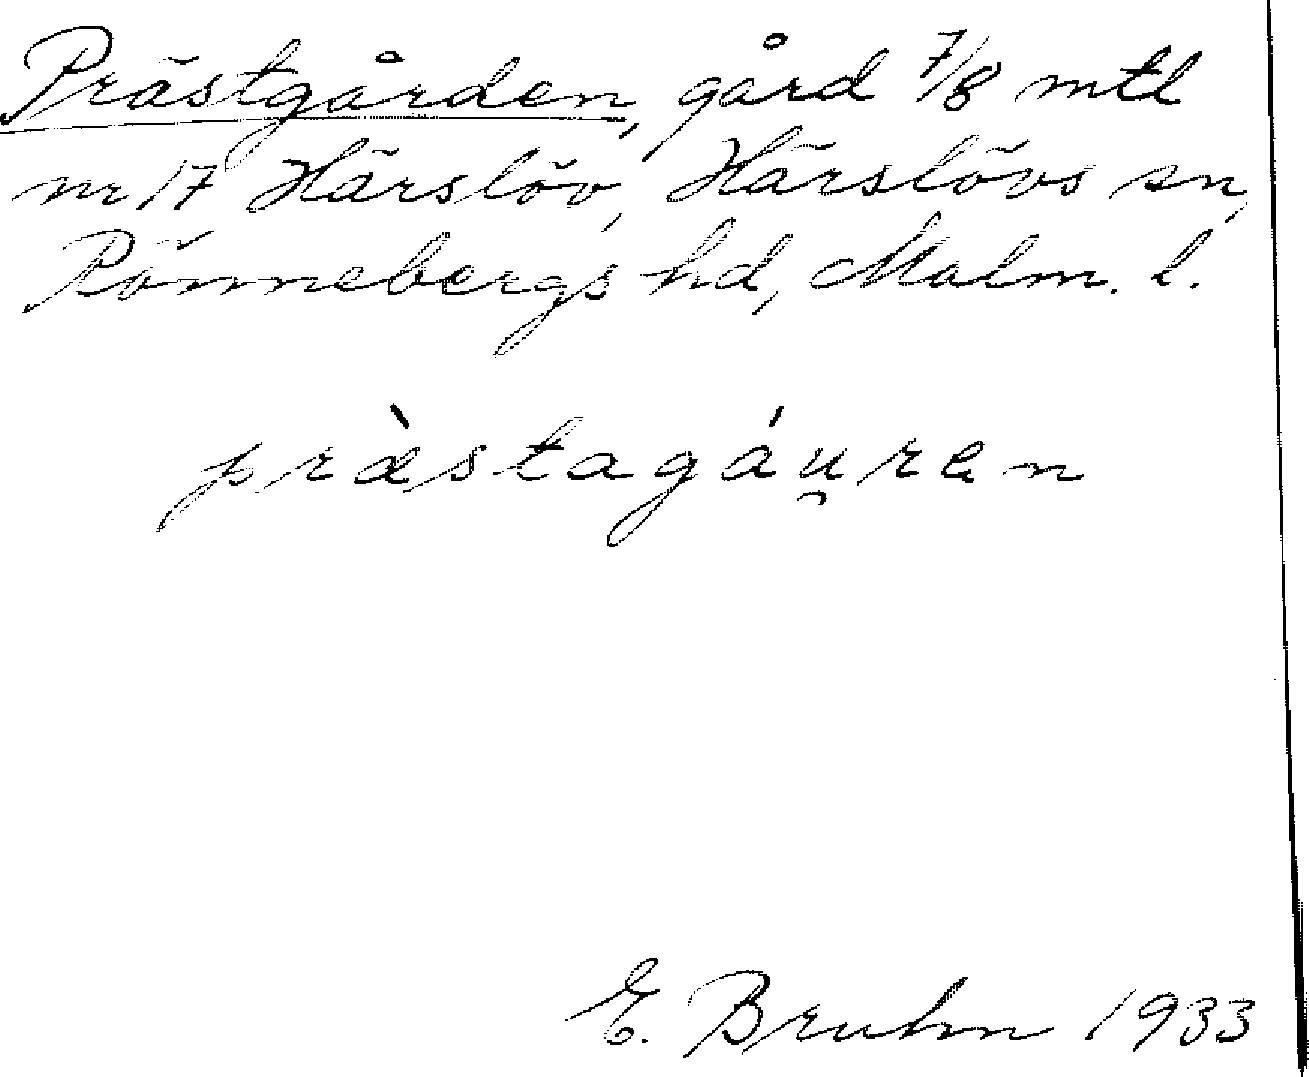 Prästgården, gård 7/8 mtl
nr 17 Härslöv, Härslövs sn,
Rönnebergs hd, Malm. l.
præ̀stagáu̯ren
E. Bruhn 1933